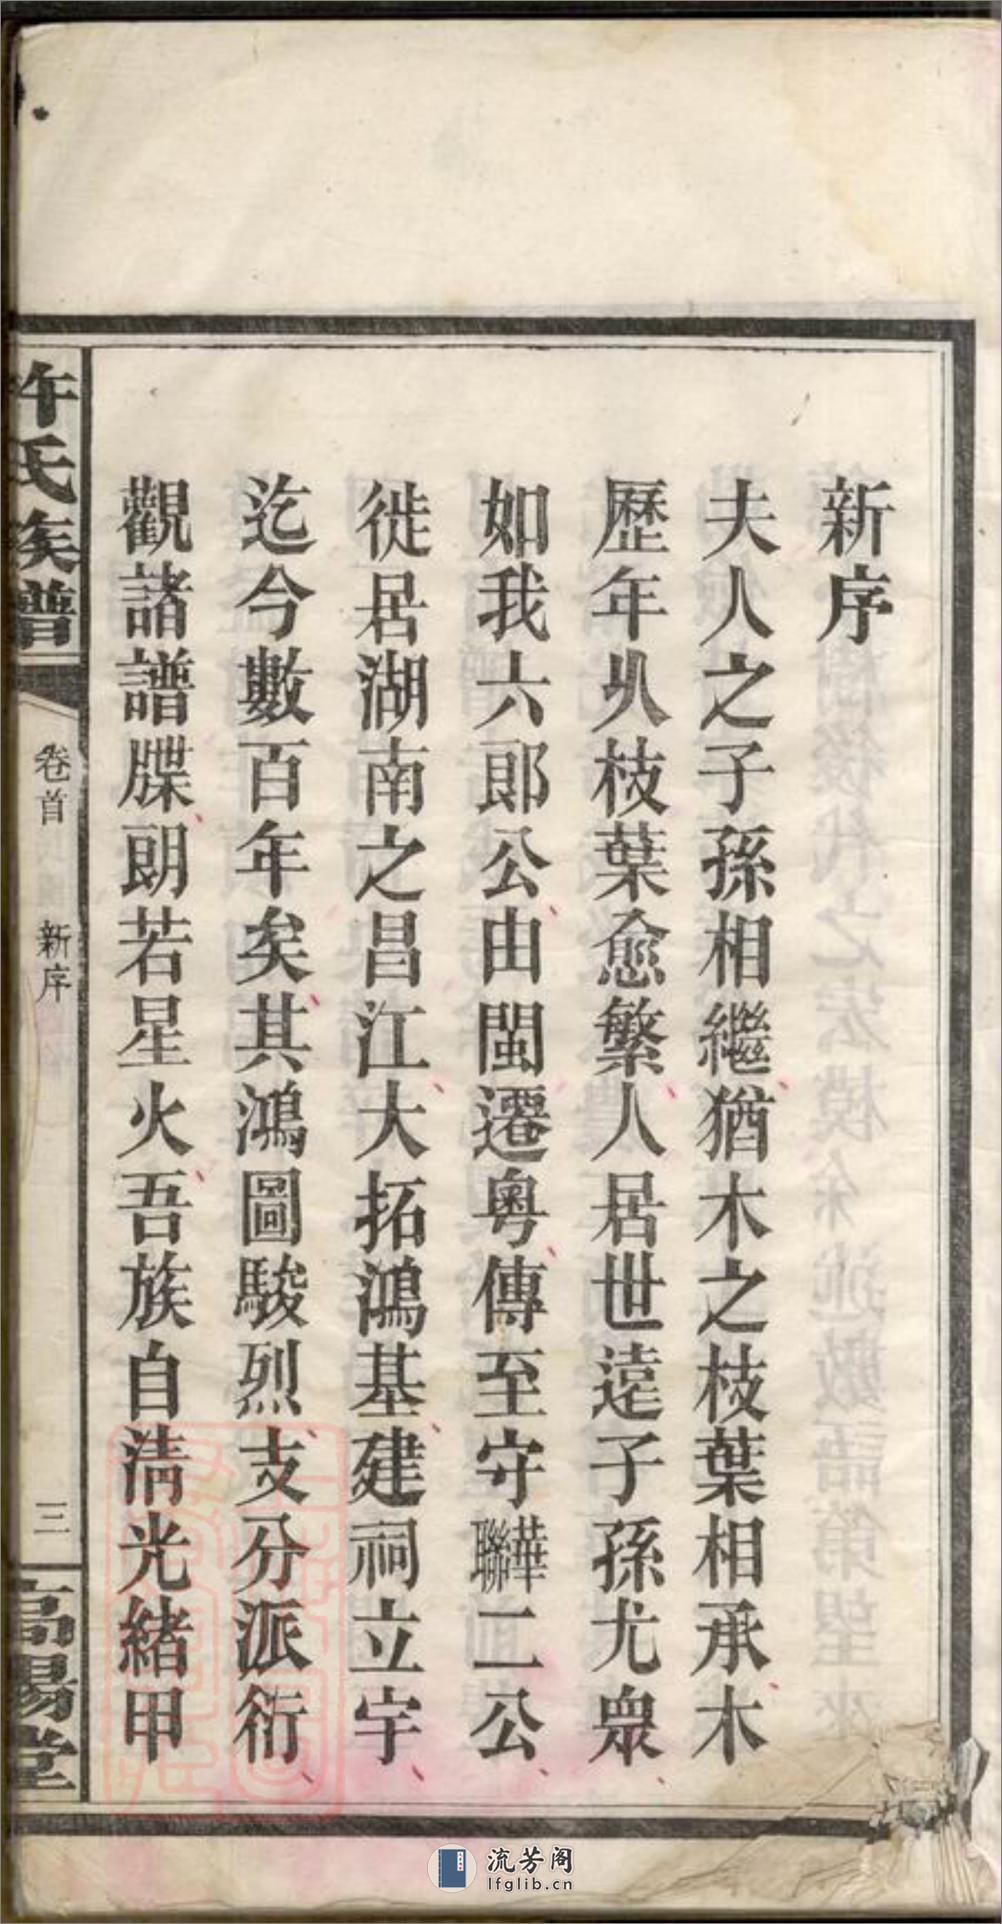 新序
夫人之子孫相繼猶木之枝葉相承木
歷年久枝葉愈繁人居世遠子孫尤衆
如我六郎公由閩遷粵傳至守華聯二公
徙居湖南之昌江大拓鴻基建祠立宇
迄今數百年矣其鴻圖駿烈支分派衍
觀諸譜牒朗若星火吾族自淸光緒甲
許氏族譜
卷首
新序
三
高陽堂
流芳阁
lfglib.cn